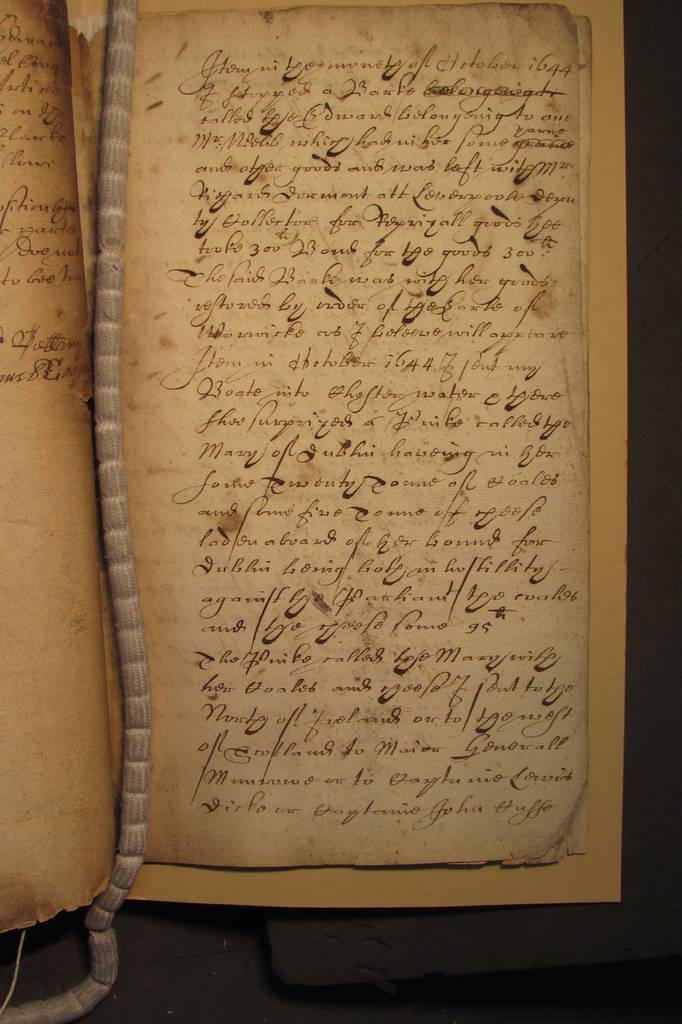 Item in the moneth of October 1644
I stopped a Barke belongeinge
called the Edward belongeing to one
Mr: Webb which had in her some yarne
and other goods and was left with Mr
Richard Dormont att Leverpoole Depu
ty Collector for Reprizall goods hee
tooke 300li Bond for the goods 300li
The said Barke was with her goods
restored by order of the Earle of
Warwicke as I beleeve will appeare
Item in October 1644 I sent my
Boate into Chester water & there
shee surprized a Pinke called the
Mary of Dublin haveing in her
some Twenty Tonne of Coales
and some five Tonne of cheese
laden aboard of her bound for
Dublin being both in hostillity
against the Parliamt the coales
and the cheese some 95li
The Pinke called the Mary with
her Coales and cheese I sent to the
North of Ireland or to the west
of Scotland to Maior Generall
Munrowe or to Captaine Lewis
Dicke or Captaine John Husse